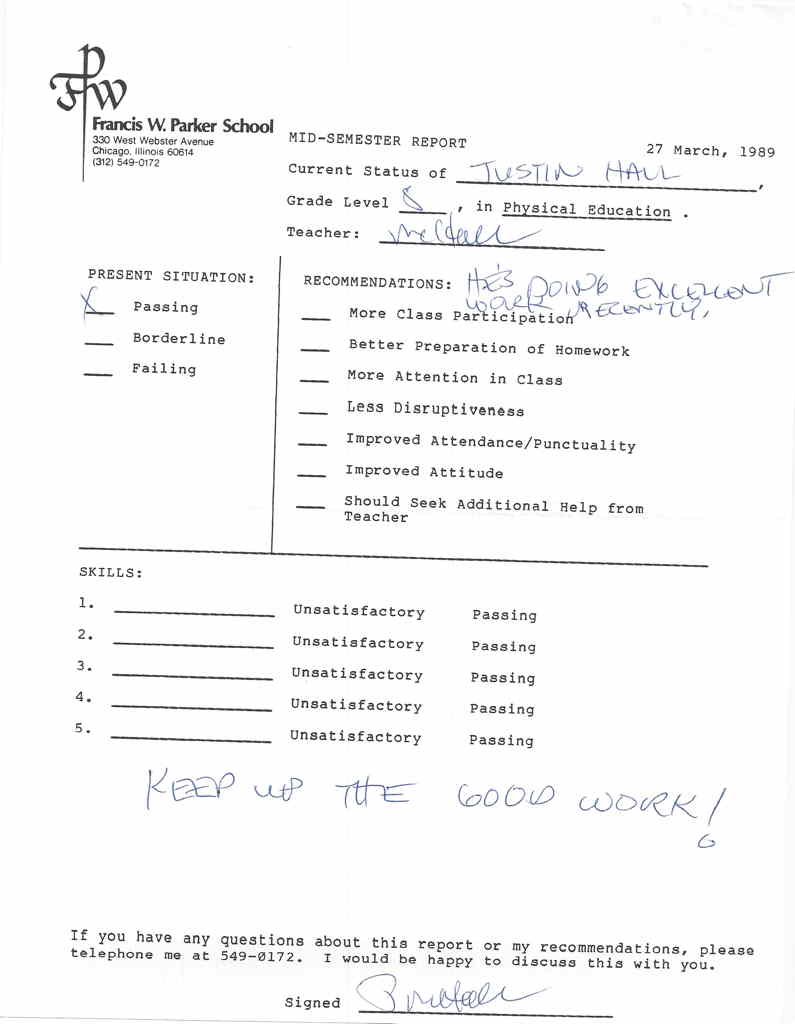 FPW
Francis W. Parker School
330 West Webster Avenue
Chicago, Illinois 60614
(312) 549-0172
MID-SEMESTER REPORT
27 March, 1989
Current Status of JUSTIN HALL,
Grade Level 8, in Physical Education.
Teacher:
PRESENT SITUATION:
X Passing
Borderline
Failing
RECOMMENDATIONS: HE'S DOING EXCELLENT
WORK RECENTLY,
More Class Participation
Better Preparation of Homework
More Attention in Class
Less Disruptiveness
Improved Attendance/Punctuality
Improved Attitude
Should Seek Additional Help from
Teacher
SKILLS:
1. Unsatisfactory Passing
2. Unsatisfactory Passing
3. Unsatisfactory Passing
4. Unsatisfactory Passing
5. Unsatisfactory Passing
KEEP UP THE GOOD WORK!
If you have any questions about this report or my recommendations, please
telephone me at 549-0172. I would be happy to discuss this with you.
Signed